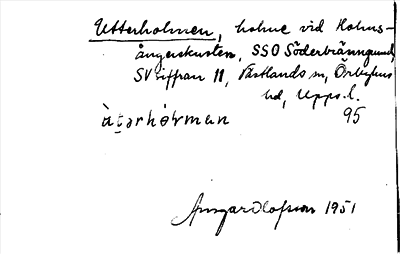 Utterholmen, holme vid Holms-
ångerskusten, SSO Söderbränngrund,
SV siffran 11, Västlands sn, Örbyhus
hd, Upps. l.
àt̠ərhólman 95
Ansgar Olofsson 1951